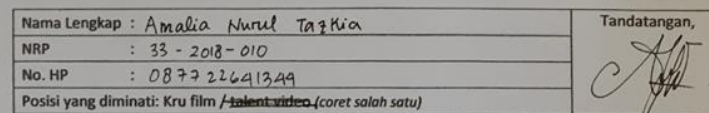 Nama Lengkap : Amalia Nurul Tazkia
Tandatangan,
NRP : 33 - 2018 - 010
No. HP : 087722641349
Posisi yang diminati: Kru film / talent video (coret salah satu)